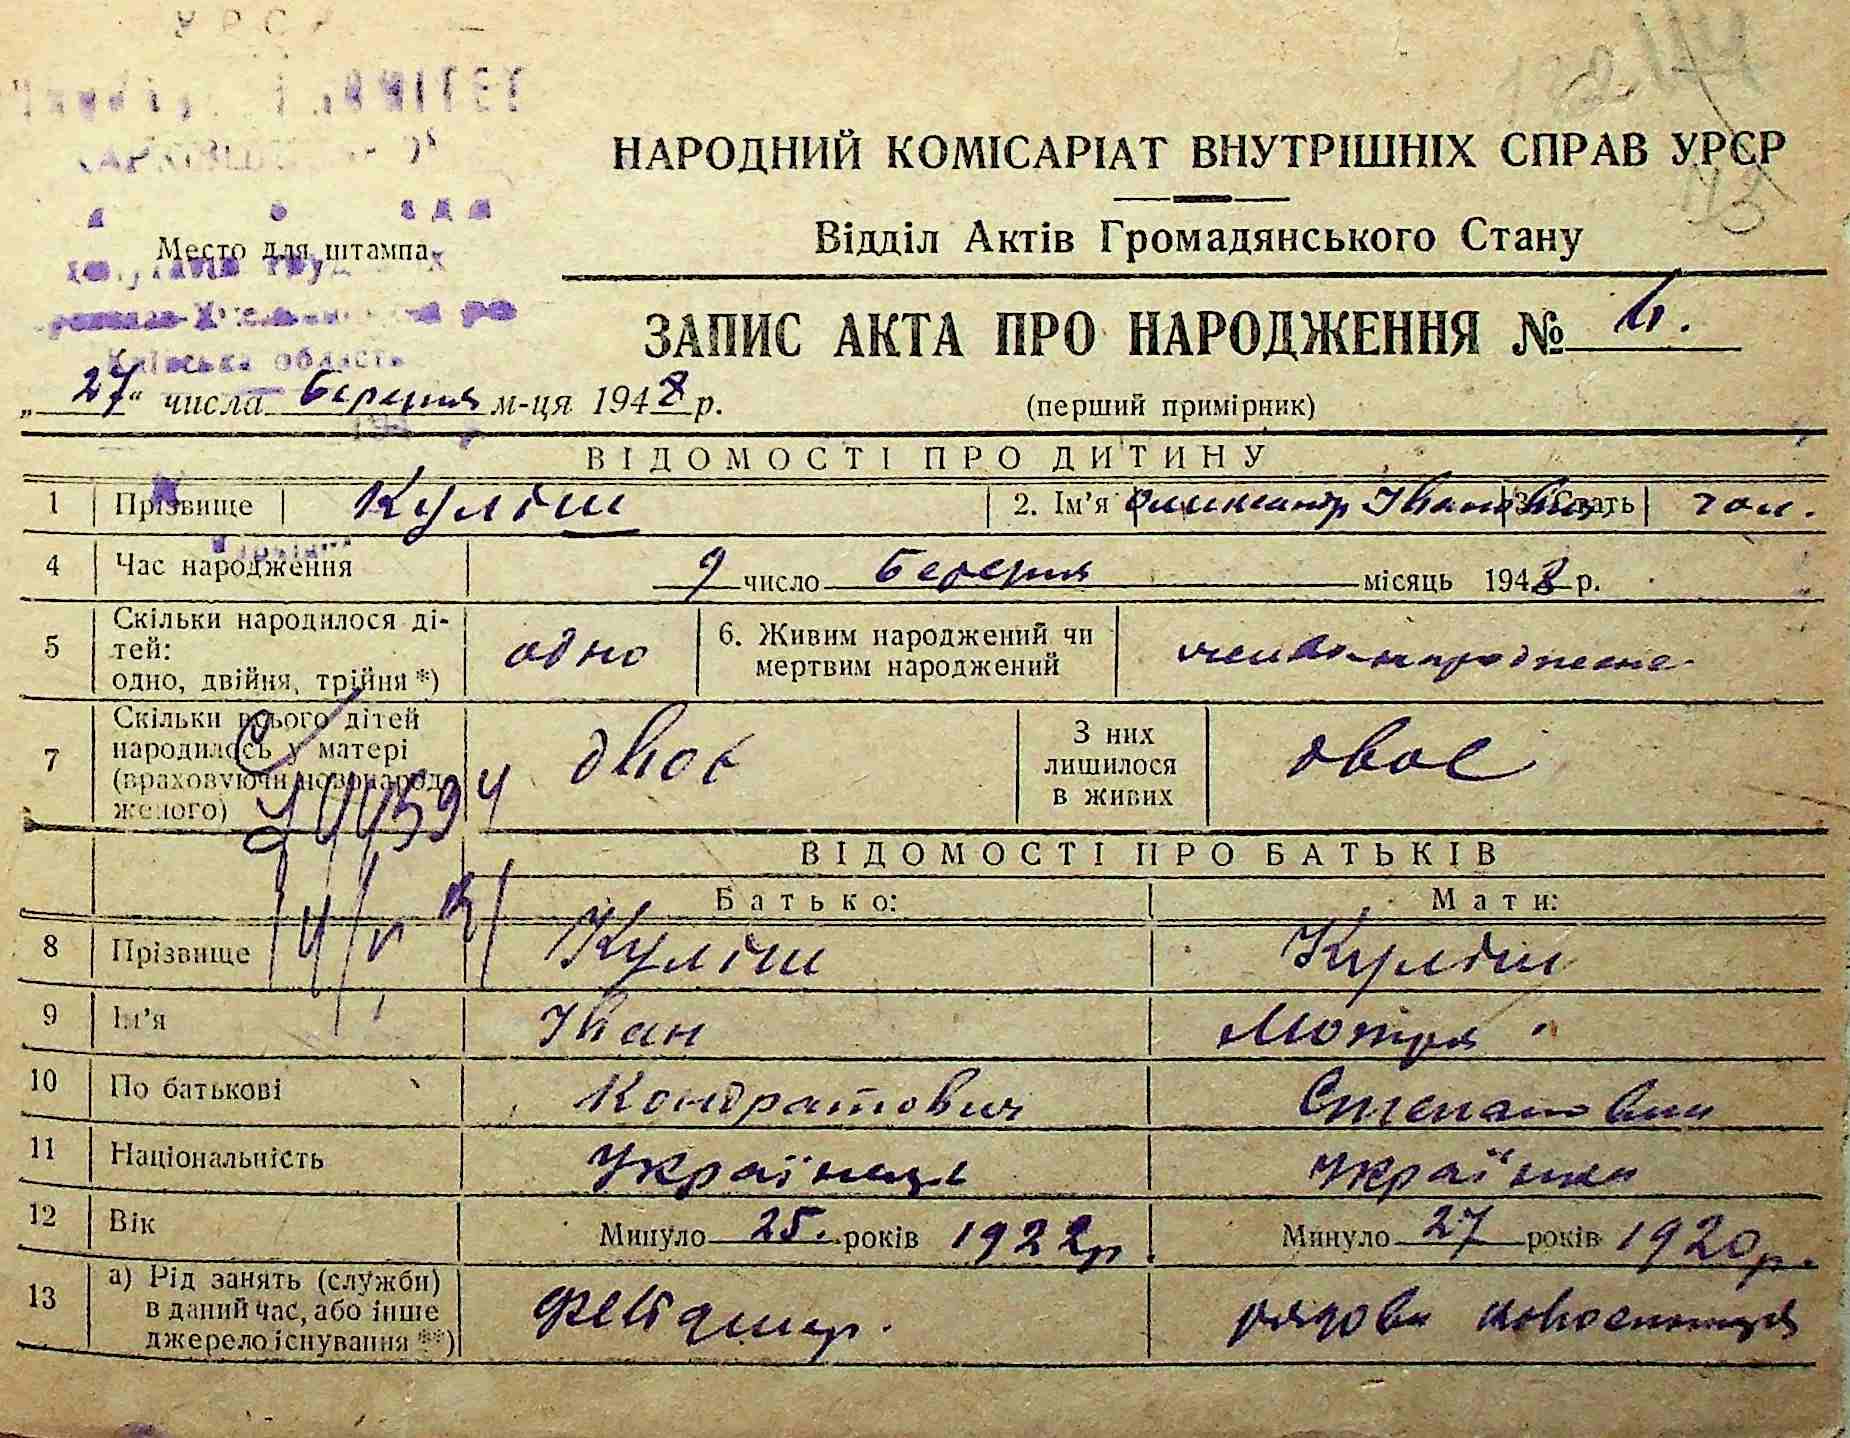 НАРОДНИЙ КОМІСАРІАТ ВНУТРІШНІХ СПРАВ УРСР
Відділ Актів Громадянського Стану
Место для штампа
Київська область
ЗАПИС АКТА ПРО НАРОДЖЕННЯ №
„27“ числа березня м-ця 1948 р.
(перший примірник)
ВІДОМОСТІ ПРО ДИТИНУ
1 Прізвище Куліш 2. Ім'я Олександр Іванович 3. Стать чол.
4 Час народження 9 число березня місяць 1948 р.
5 Скільки народилося ді-
тей:
одно, двійня, трійня *) одно 6. Живим народжений чи
мертвим народжений живонароджене
7 Скільки всього дітей
народилось у матері
(враховуючи новонарод
женого) двоє З них
лишилося
в живих двоє
ВІДОМОСТІ ПРО БАТЬКІВ
Батько: Мати:
8 Прізвище Куліш Куліш
9 Ім'я Іван Мотря
10 По батькові Кондратович Степановна
11 Національність Українець Українка
12 Вік Минуло 25. років 1922 р. Минуло 27 років 1920 р.
13 а) Рід занять (служби)
в даний час, або інше
джерело існування **) Фельдшер. рядова колгоспниця